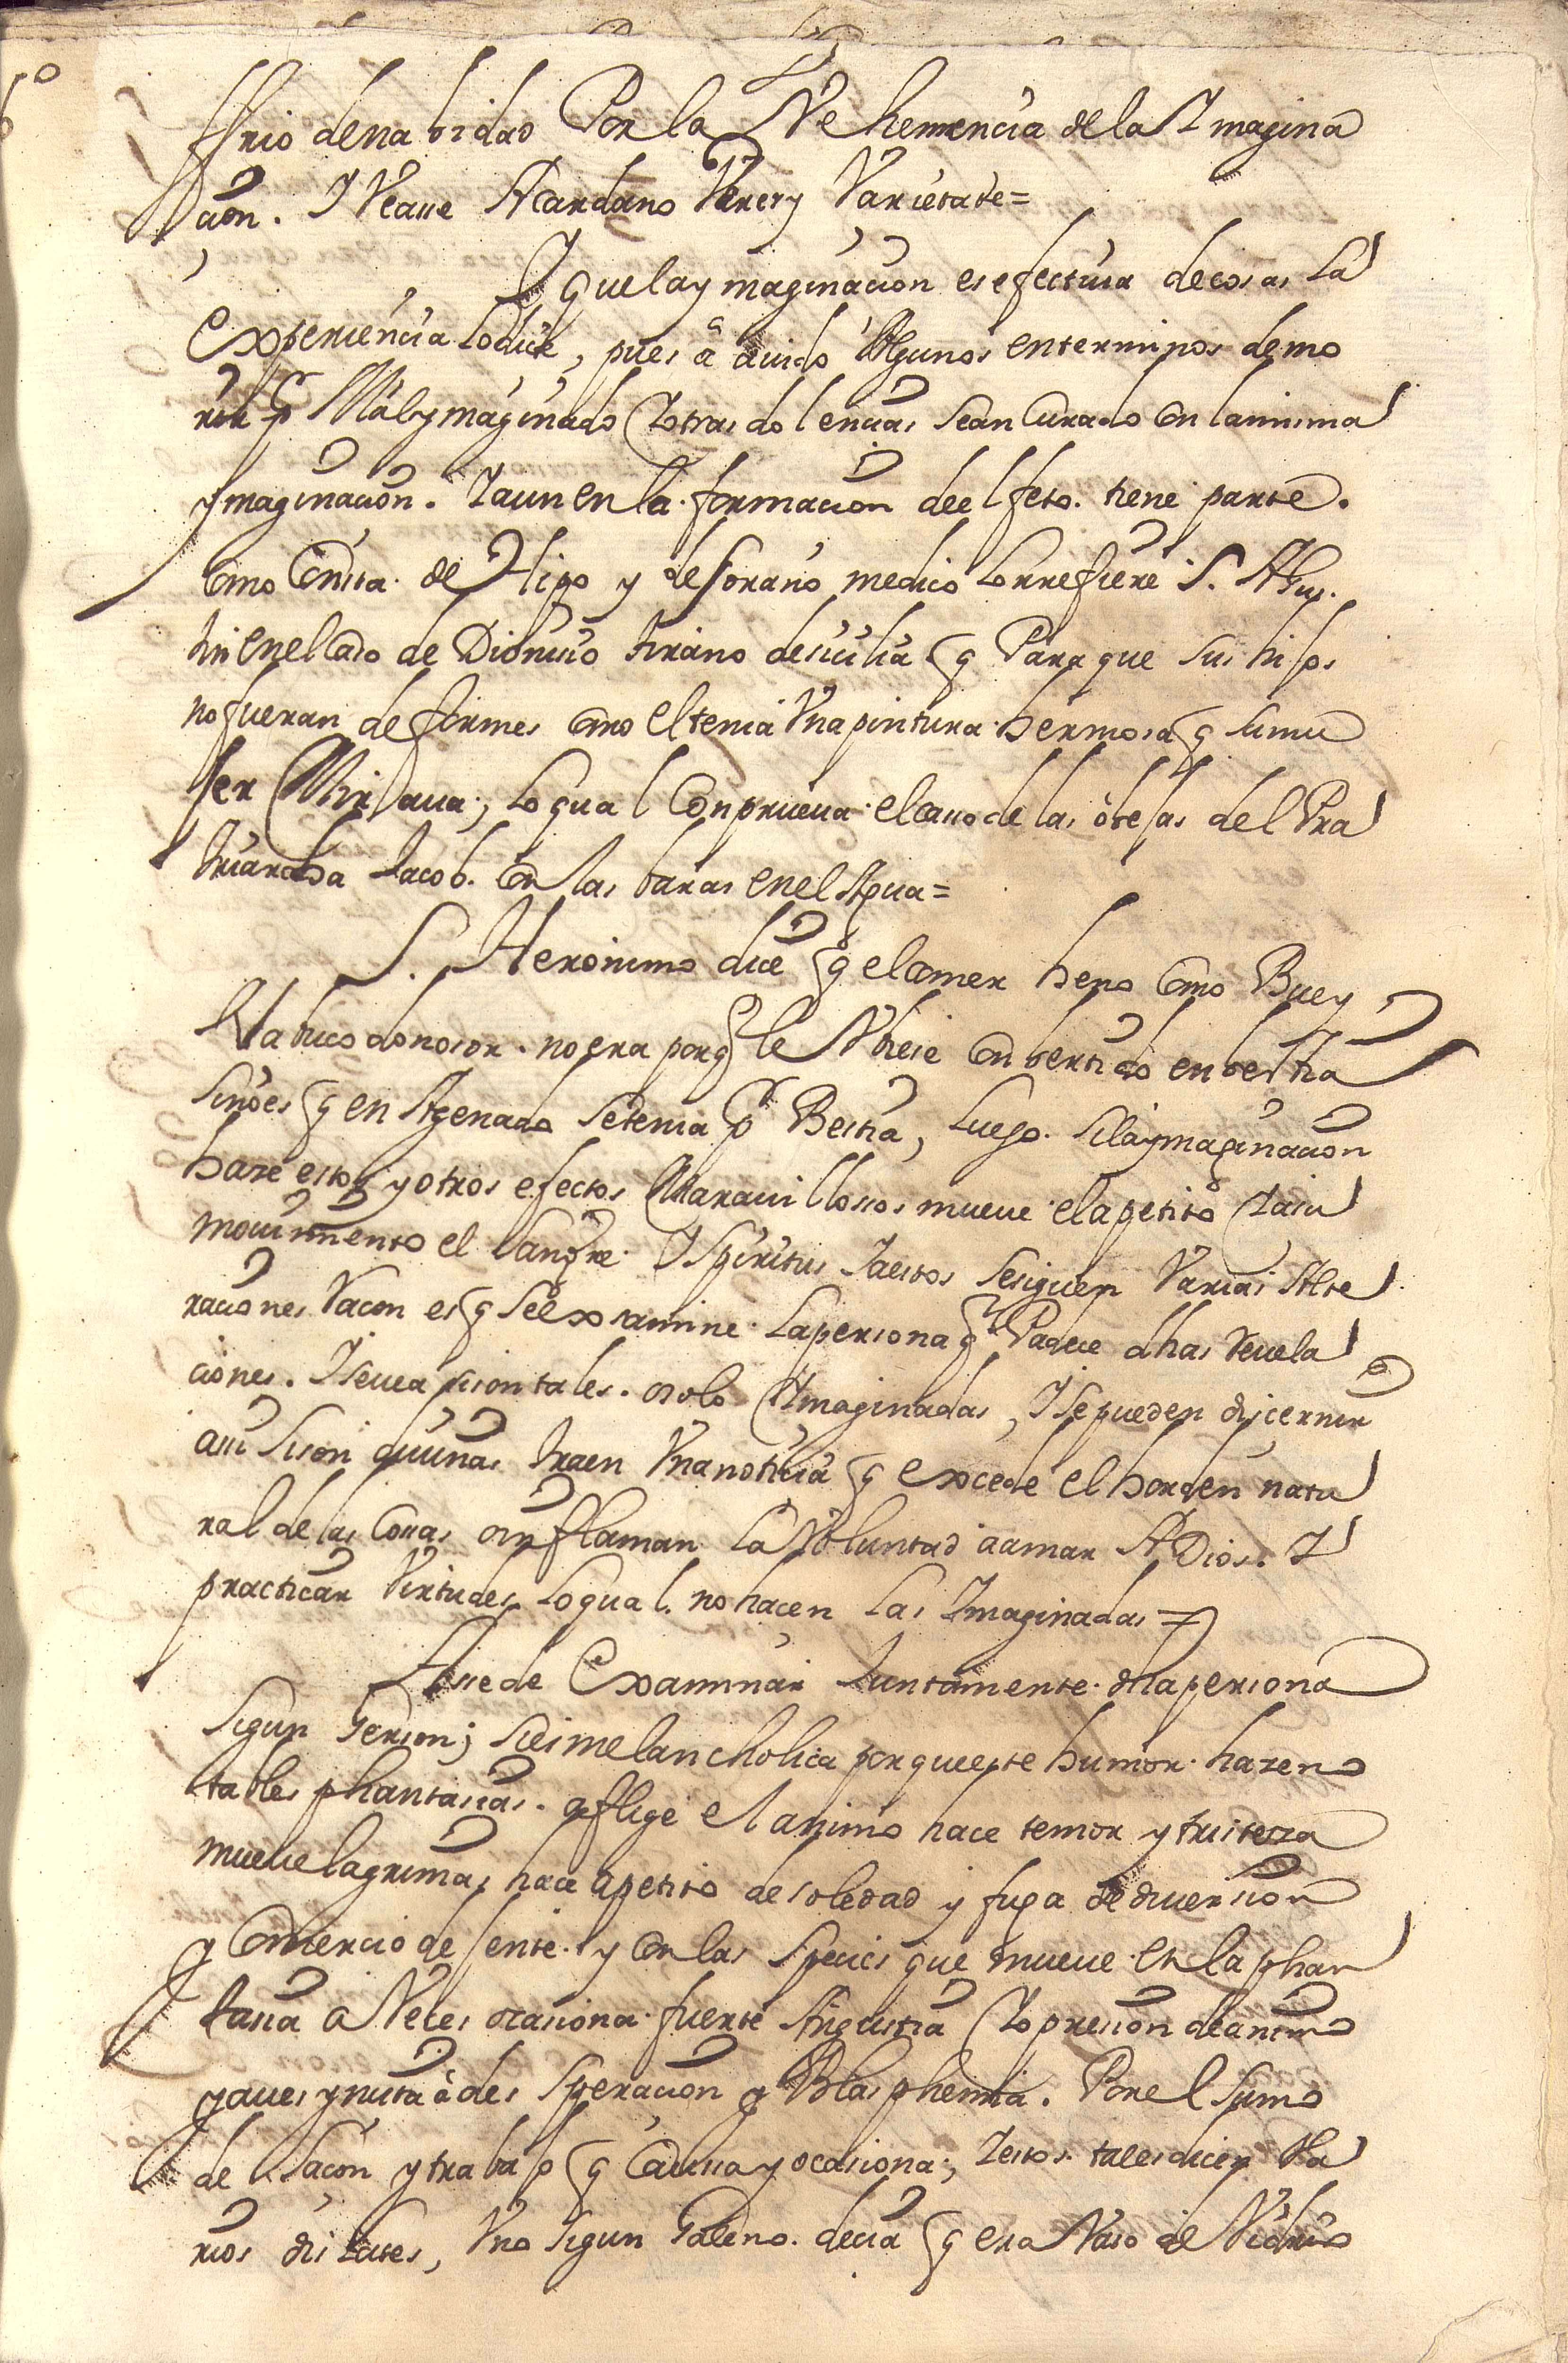 ffrio dena bidad Por la Vehemencia de la Imagina
cion. I Vease A Cardano Varietate=
I que la ymaginacion es efectiua de cosas La
experiencia lo dice, pues a auido Algunos en terminos de mo
rir pr Mal ymaginado Iotras dolencias sean Curado Con la misma
ymaginacion. I aun en la formacion de el feto. tiene parte.
Como Consta de Hipo y de Sorano medico Lo rrefiere S. Agus.
tin en el caso de Dionisio tirano de sicilia q Para que sus hijos
no fueran deformes Como el tenia Vna pintura hermosa q su mu
jer Miraua; Lo qual Conprueua el caso de las obejas del Pa
triarcha Jacob. Con las baras en el Agua=
S. Heronimo dice q el comer heno Como Buey
Nabucodonosor. no era porq le Vbiese Conbertido en bestia
sino es q en Agenado se tenia pr Bestia, Luego. si la ymaginacion
haze estos y otros efectos Marauillosos mueue el apetito I a su
mouimiento el sangre Ispiritus I a estos se siguen Varias Alte
raciones Racon es q se examine La persona q Padece dhas Reuela
ciones. I se uea si son tales. o solo Imaginadas, I se pueden discernir
asi si son diuinas traen Vna noticia q excede el horden natu
ral de las Cosas o inflaman La Voluntad a amar A Dios. I
practicar Virtudes Lo qual. no hacen Las Imaginadas=
Ase de Examinar Juntamente. dha persona
Sigun Gerson; si es melancholica porque este humor hazen
tables phantasias. aflige el animo hace temor y tristeza
mueue lagrimas hace apetito de soledad y fuga de diuersion
y Comercio de jente. y Con las Species que mueue en la phan
tasia a Veces ocasiona fuerte Angustia I opresion de animo
y aues ynsita a des Speracion y Blasphemia. Por el sumo
de Sacon y trabajo q Causa y ocasiona; I estos. tales dicen Va
rios dislates, Vno sigun Galeno. decia q era Vaso de Vidrio